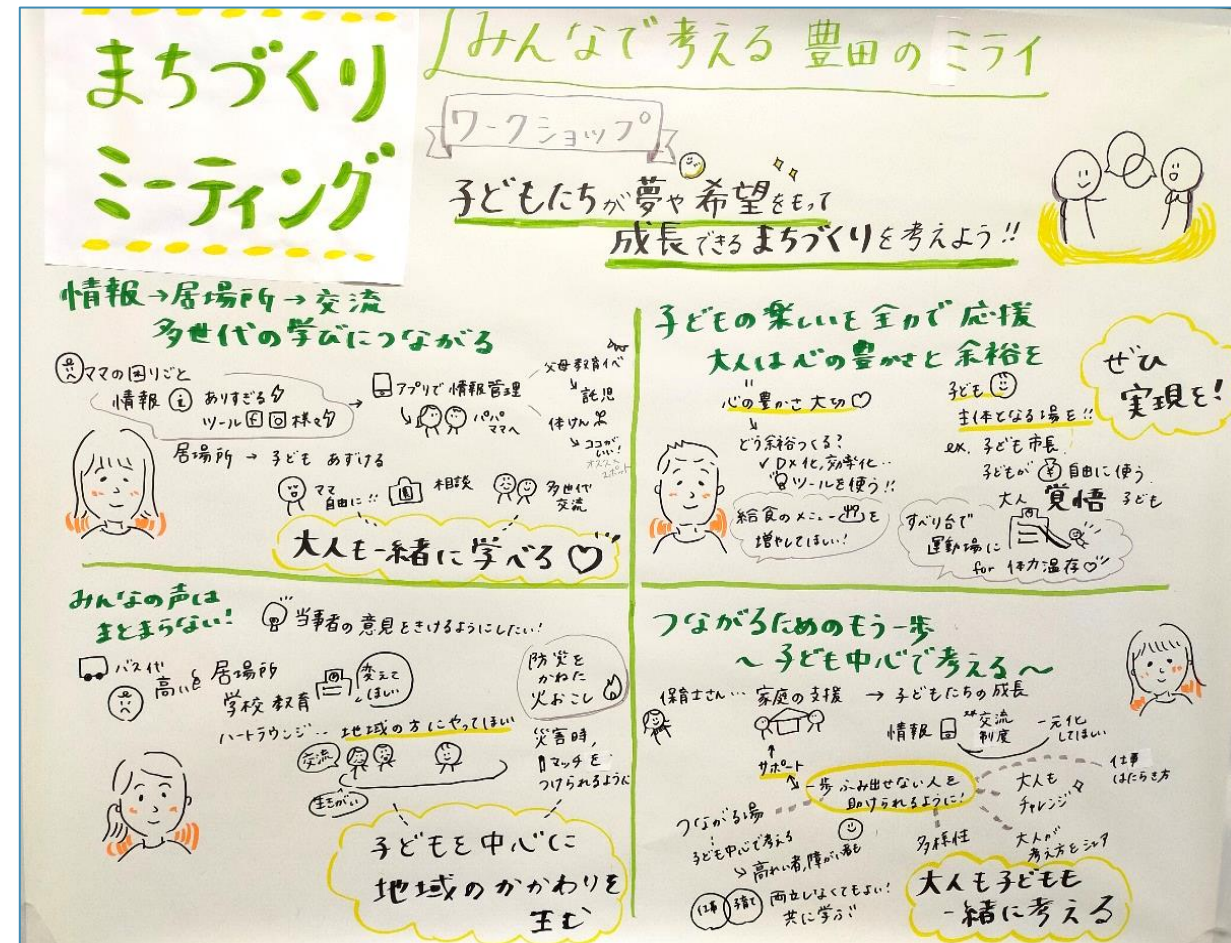 まちづくり
ミーティング
みんなで考える 豊田のミライ
ワークショップ
子どもたちが夢や希望をもって
成長できるまちづくりを考えよう!!
情報→居場所→交流
多世代の学びにつながる
ママの困りごと
情報 i ありすぎる
ツール f 様々
居場所 → 子ども あずける
ママ
自由に!!
相談
多世代
交流
アプリで情報管理
パパ
ママへ
父母教育イベ
託児
体けん
ココが、
いい!
オススメ
スポット
大人も一緒に学べる♡
子どもの楽しいを全力で応援
大人は心の豊かさと余裕を
心の豊かさ 大切♡
どう余裕つくる?
✓DX化,効率化‥
ツールを使う!!
給食のメニューを
増やしてほしい!
子ども
主体となる場を!!
ex. 子ども市長
子どもが ¥ 自由に使う
大人 覚悟 子ども
すべり台で
運動場に
for 体力温存♡
ぜひ
実現を!
みんなの声は
まとまらない!
当事者の意見をきけるようにしたい!
バス代
高い
居場所
学校教育
変えて
ほしい
ハートラウンジ‥ 地域の方にやってほしい
交流
生きがい
防災を
かねた
火おこし
災害時,
マッチを
つけられるように
子どもを中心に
地域のかかわりを
生む
つながるためのもう一歩
~子ども中心で考える~
保育士さん… 家庭の支援 → 子どもたちの成長
情報
交流
制度
一元化
してほしい
サポート
一歩ふみ出せない人を
助けられるように!
つながる場
子ども中心で考える
高れい者,障がい者も
仕事
子育て
両立しなくてもよい!
共に学ぶ
多様性
大人も
チャレンジ
仕事
はたらき方
大人が
考え方をシェア
大人も子どもも
一緒に考える